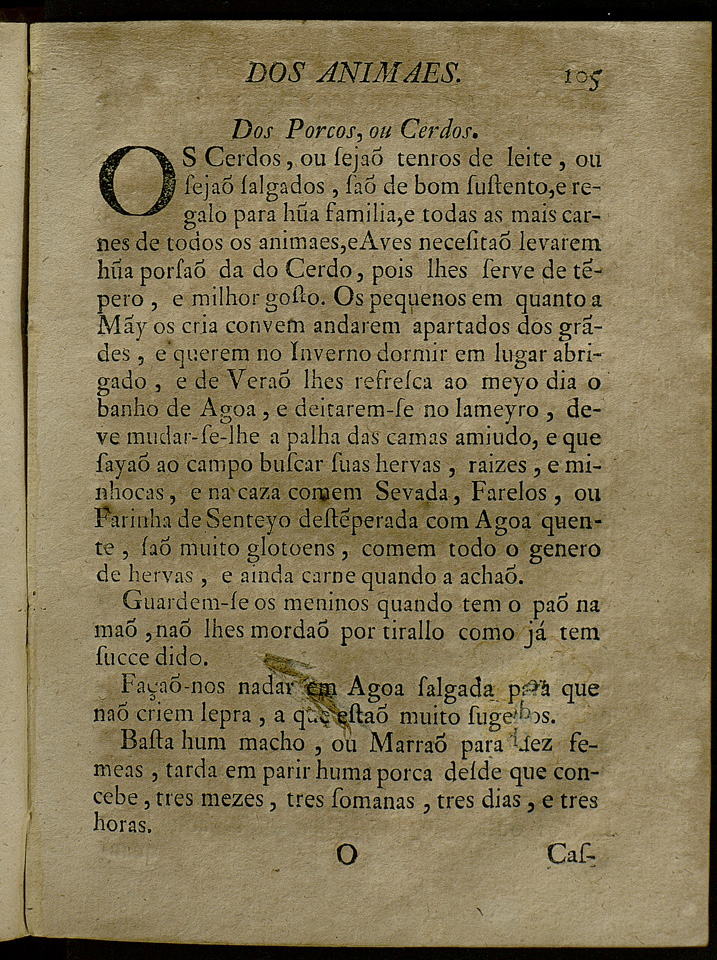 DOS ANIMAES. 105
Dos Porcos, ou Cerdos.
OS Cerdos, ou ſejaõ tenros de leite, ou
ſejaõ ſalgados, ſaõ de bom ſuſtento,e re-
galo para hũa familia,e todas as mais car-
nes de todos os animaes,eAves neceſitaõ levarem
hũa porſaõ da do Cerdo, pois lhes ſerve de tẽ-
pero, e milhor goſto. Os pequenos em quanto a
Mãy os cria convem andarem apartados dos grã-
des, e querem no Inverno dormir em lugar abri-
gado, e de Veraõ lhes refreſca ao meyo dia o
banho de Agoa, e deitarem-ſe no lameyro, de-
ve mudar-ſe-lhe a palha das camas amiudo, e que
ſayaõ ao campo buſcar ſuas hervas, raizes, e mi-
nhocas, e na caza comem Sevada, Farelos, ou
Farinha de Senteyo deſtẽperada com Agoa quen-
te, ſaõ muito glotoens, comem todo o genero
de hervas, e ainda carne quando a achaõ.
Guardem-ſe os meninos quando tem o paõ na
maõ,naõ lhes mordaõ por tirallo como já tem
ſucce dido.
Façaõ-nos nadar em Agoa ſalgada para que
naõ criem lepra, a que eſtaõ muito ſugeitos.
Baſta hum macho, ou Marraõ para dez fe-
meas, tarda em parir huma porca deſde que con-
cebe, tres mezes, tres ſomanas, tres dias, e tres
horas.
O Caſ-